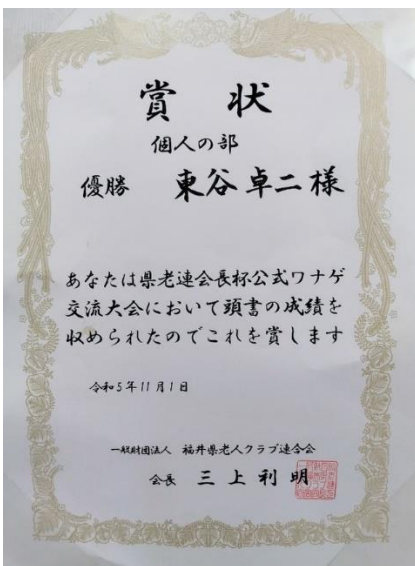 賞 状
個人の部
優勝 東谷卓二様
あなたは県老連会長杯公式ワナゲ
交流大会において頭書の成績を
収められたのでこれを賞します
令和5年11月1日
一般財団法人 福井県老人クラブ連合会
会長 三上利明